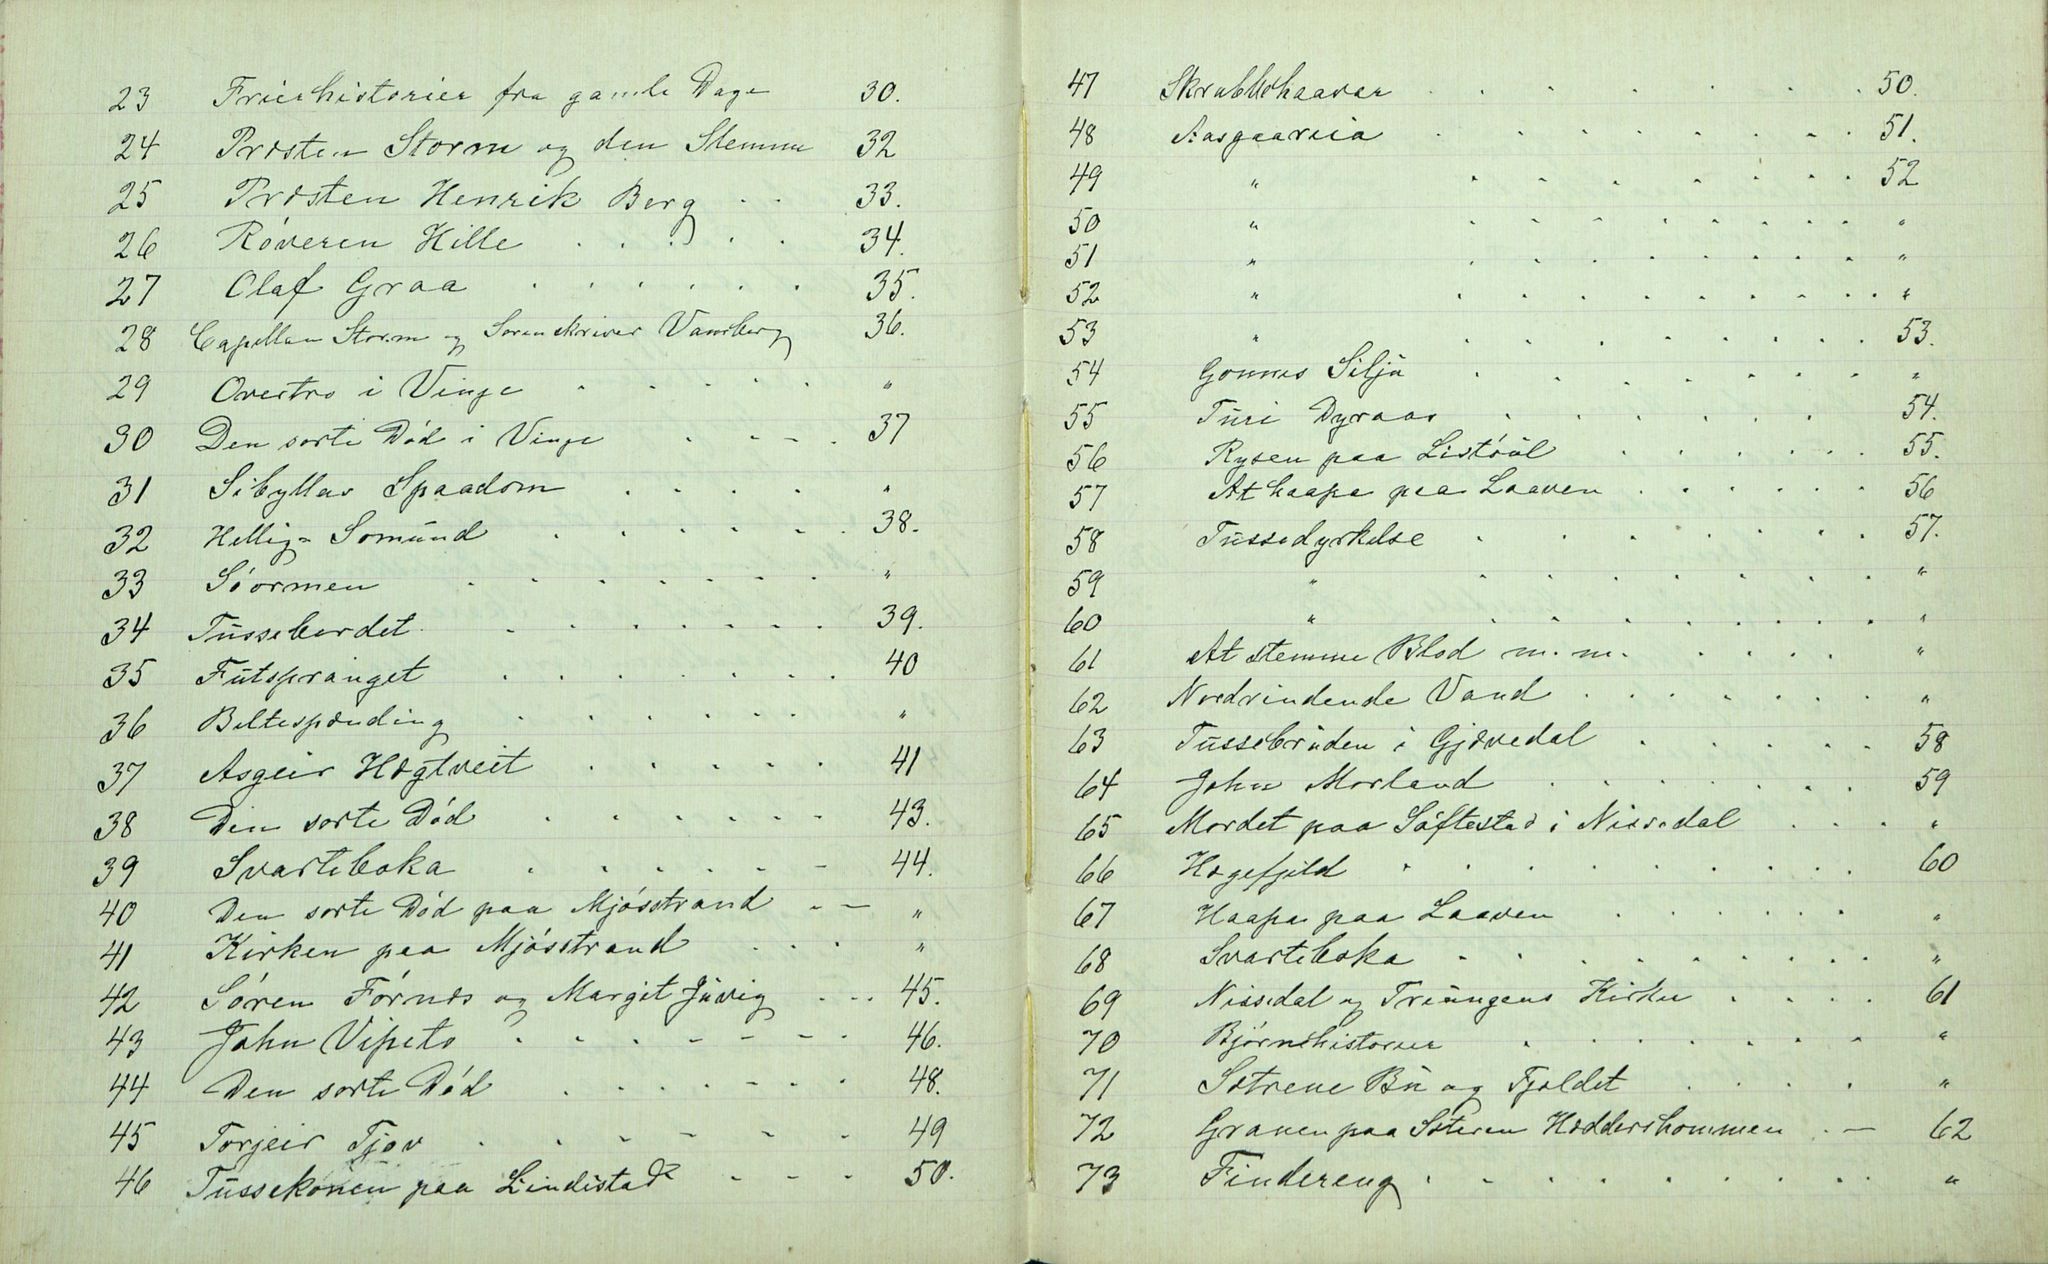 23 Frierhistorier fra gamle Dage 30.
24 Præsten Storm og den Stemme 32
25 Præsten Henrik Berg . . 33.
26 Røveren Hille . . . . . 34.
27 Olaf Graa . . . . . . 35.
28 Capellan Storm og Sorenskriver Vamberg 36.
29 Overtro i Vinje . . . . . "
30 Den sorte Død i Vinje . . - . 37
31 Sibyllas Spaadom . . . . "
32 Hellig-Somund . . . . . . 38.
33 Søormen . . . . . . . "
34 Tussebordet . . . . . . 39.
35 Futspranget . . . . . . . 40
36 Beltespænding . . . . . . "
37 Asgeir Hægtveit . . . . . 41
38 Den sorte Død . . . . . . 43.
39 Svarteboka . . . . . . - 44.
40 Den sorte Død paa Mjøsstrand . - "
41 Kirken paa Mjøsstrand . . . "
42 Søren Førnæs og Margit Juvig . . . 45.
43 John Vipeto . . . . - - - 46.
44 Den sorte Død . . . . . . 48.
45 Torjeir Tjov . . . - - - . 49
46 Tussekonen paa Lindistad - - . 50.
47 Skrubbehaavar . . . . . . . . 50.
48 Aasgaareia . . . . . . . . 51.
49 " . . . . . . . . 52
50 " . . . . . . . . "
51 " . . . . . . . . "
52 " . . . . . . . . "
53 " . . . . . . . . 53.
54 Gonnes Silju . . . . . . . "
55 Turi Dyraas . . . . . . 54.
56 Rysen paa Listöül . . . . . . 55.
57 At haapa paa Laaven . . . . . . 56
58 Tussedyrkelse . . . . . . . 57.
59 " . . . . . . . "
60 " . . . . . . . "
61 At stemme Blod m.m. . . . . . "
62 Nordrindende Vand . . . . . . . "
63 Tussebruden i Gjøvedal . . . . . 58
64 John Morland . . . . . . . 59
65 Mordet paa Søftestad i Nissedal . . . "
66 Hægefjeld . . . . . . . . 60
67 Haapa paa Laaven . . . . . . "
68 Svarteboka . . . . . . . . "
69 Nissedal og Treungens Kirke . . . . 61
70 Bjørnehistorier . . . . . . . "
71 Sætrene Bu og Fjoldet . . . . "
72 Graven paa Sæteren Hæddershommen . - 62
73 Findereng . . . . . . . . "